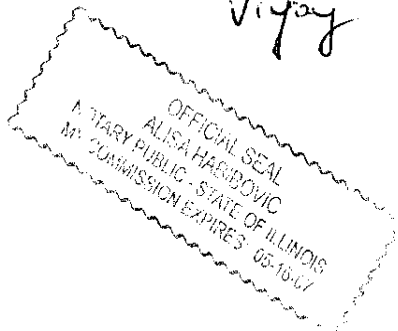 Vijay
OFFICIAL SEAL
ALISA HABIBOVIC
NOTARY PUBLIC - STATE OF ILLINOIS
MY COMMISSION EXPIRES 05-16-07